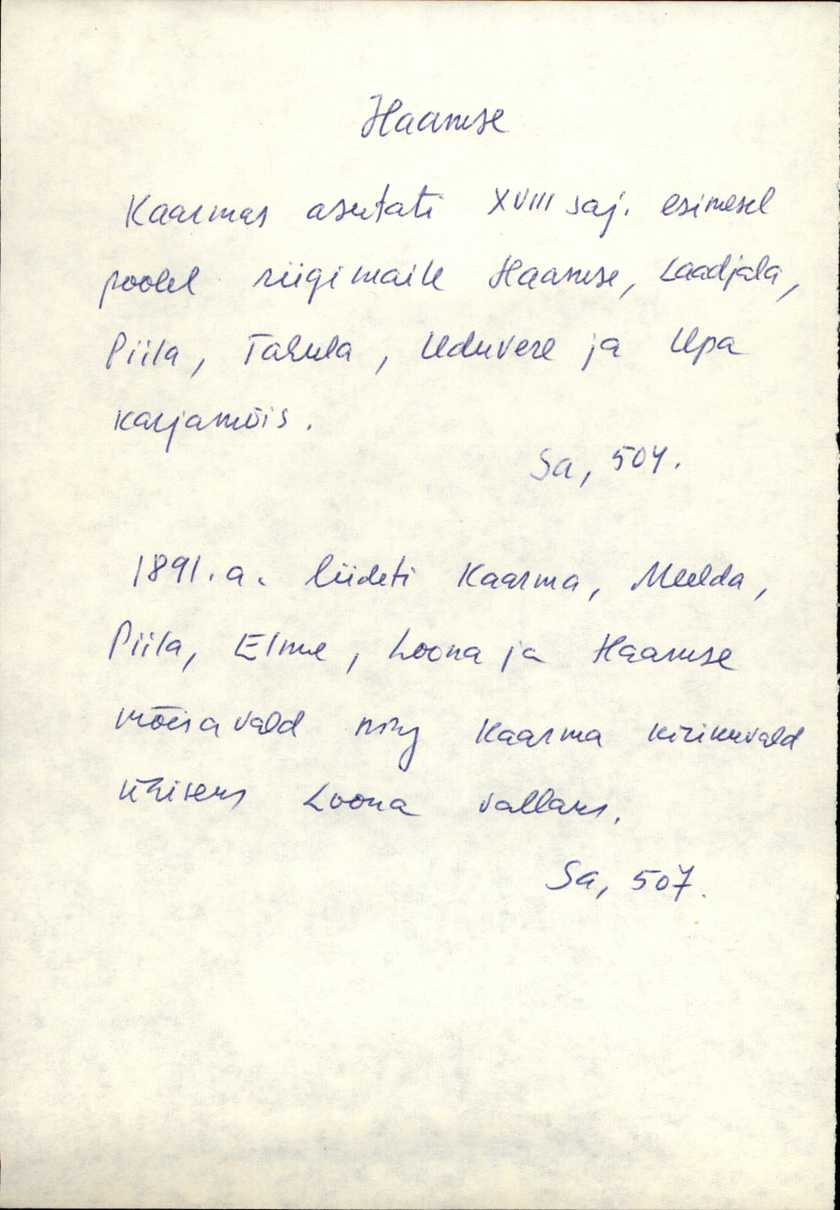 Haamse
Kaarmas asutati XVIII saj. esimesel
poolel riigimaile Haamse, Laadjala,
Piila, Tahula, Uduvere ja Upa
karjamõis.
Sa, 504.
1891.a. liideti Kaarma, Meelda,
Piila, Elme, Loona ja Haamse
mõisavald ning Kaarma kirikuvald
ühiseks Loona vallaks.
Sa, 507.